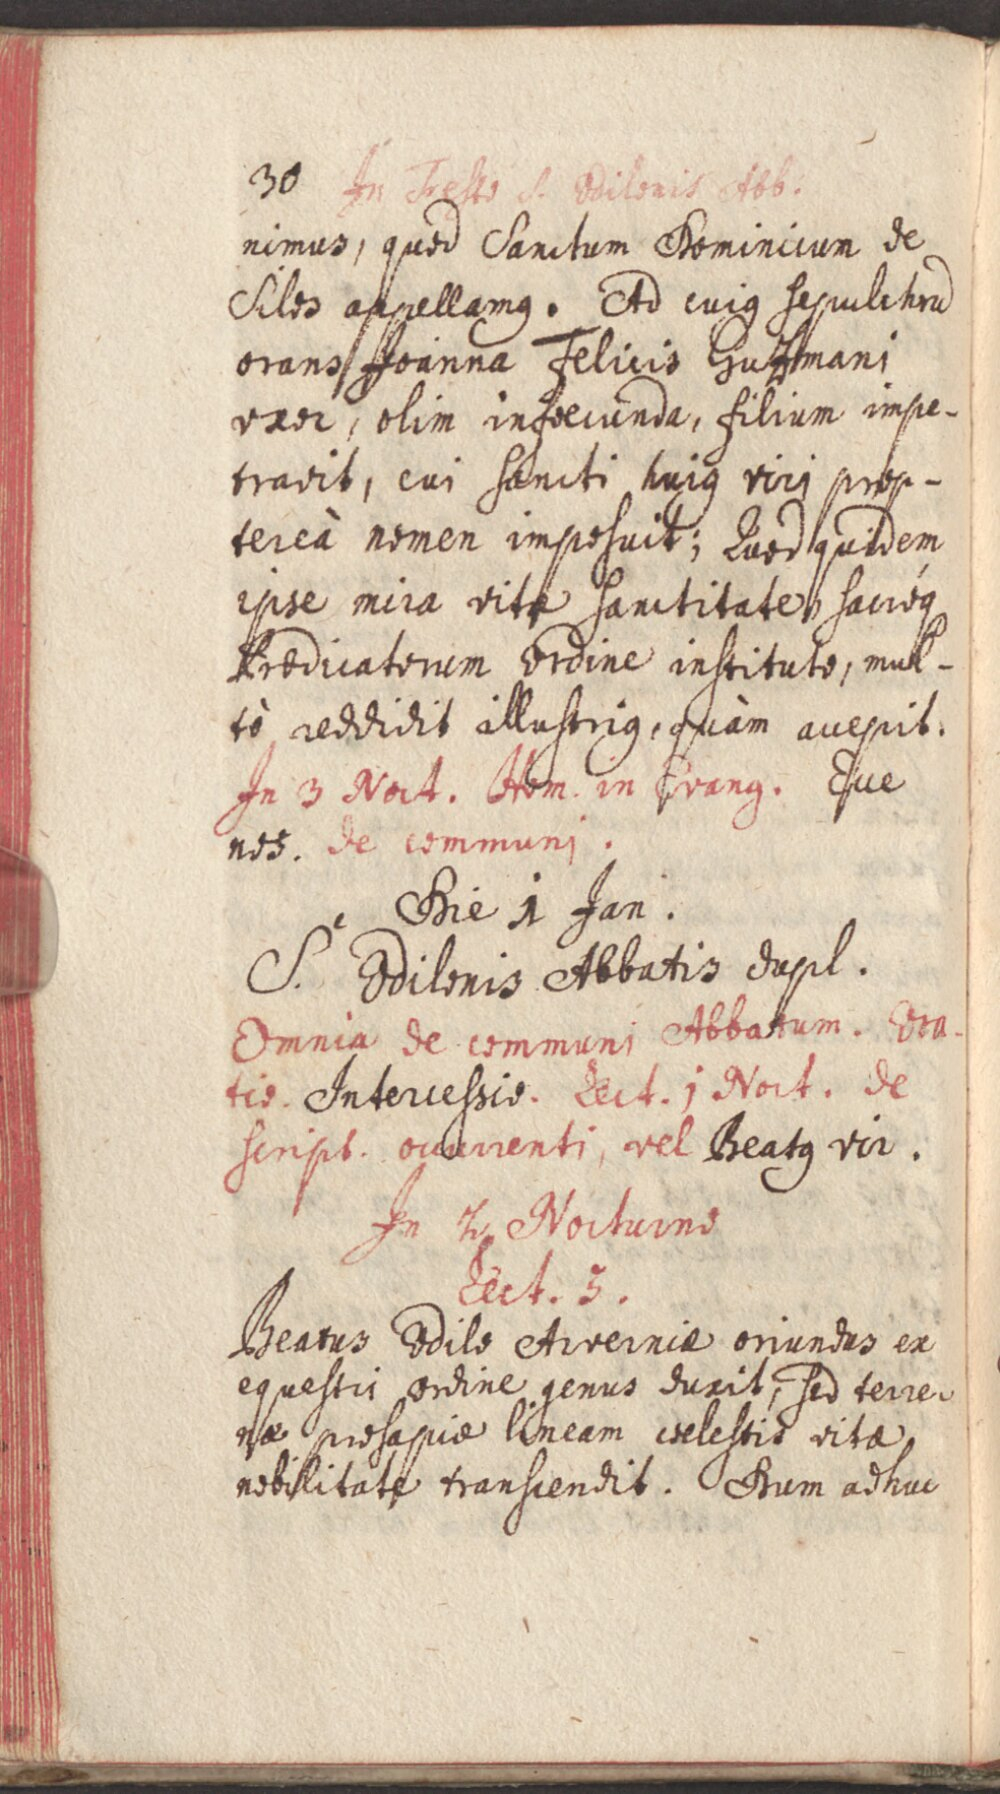 30 In Festo S. Odilonis Abb:
nimus, quod Sanctum Dominicum de
Silos appellamꝰ. Ad cuiꝰ sepulchrū
orans Joanna Felicis Guzmani
vxor, olim infoecunda, filium impe-
travit, cui sancti huiꝰ viri prop-
tereà nomen imposuit; Quod quidem
ipse mira vitæ sanctitate, sacróq
Prædicatorum Ordine instituto, mul-
tò reddidit illustriꝰ, quàm accepit.
In 3 Noct. Hom. in Evang. Ecce
nos. de communi.
Die 1 Jan.
S.ͭ Odilonis Abbatis dupl.
Omnia de communi Abbatum. Ora-
tio. Intercessio. Lect. 1 Noct. de
script. occurrenti, vel Beatꝰ vir.
In 2 Nocturno
Lect. 5.
Beatus Odilo Arverniæ oriundus ex
equestri ordine genus duxit, sed terre-
næ prosapiæ lineam coelestis vitæ
nobilitate transcendit. Dum adhuc